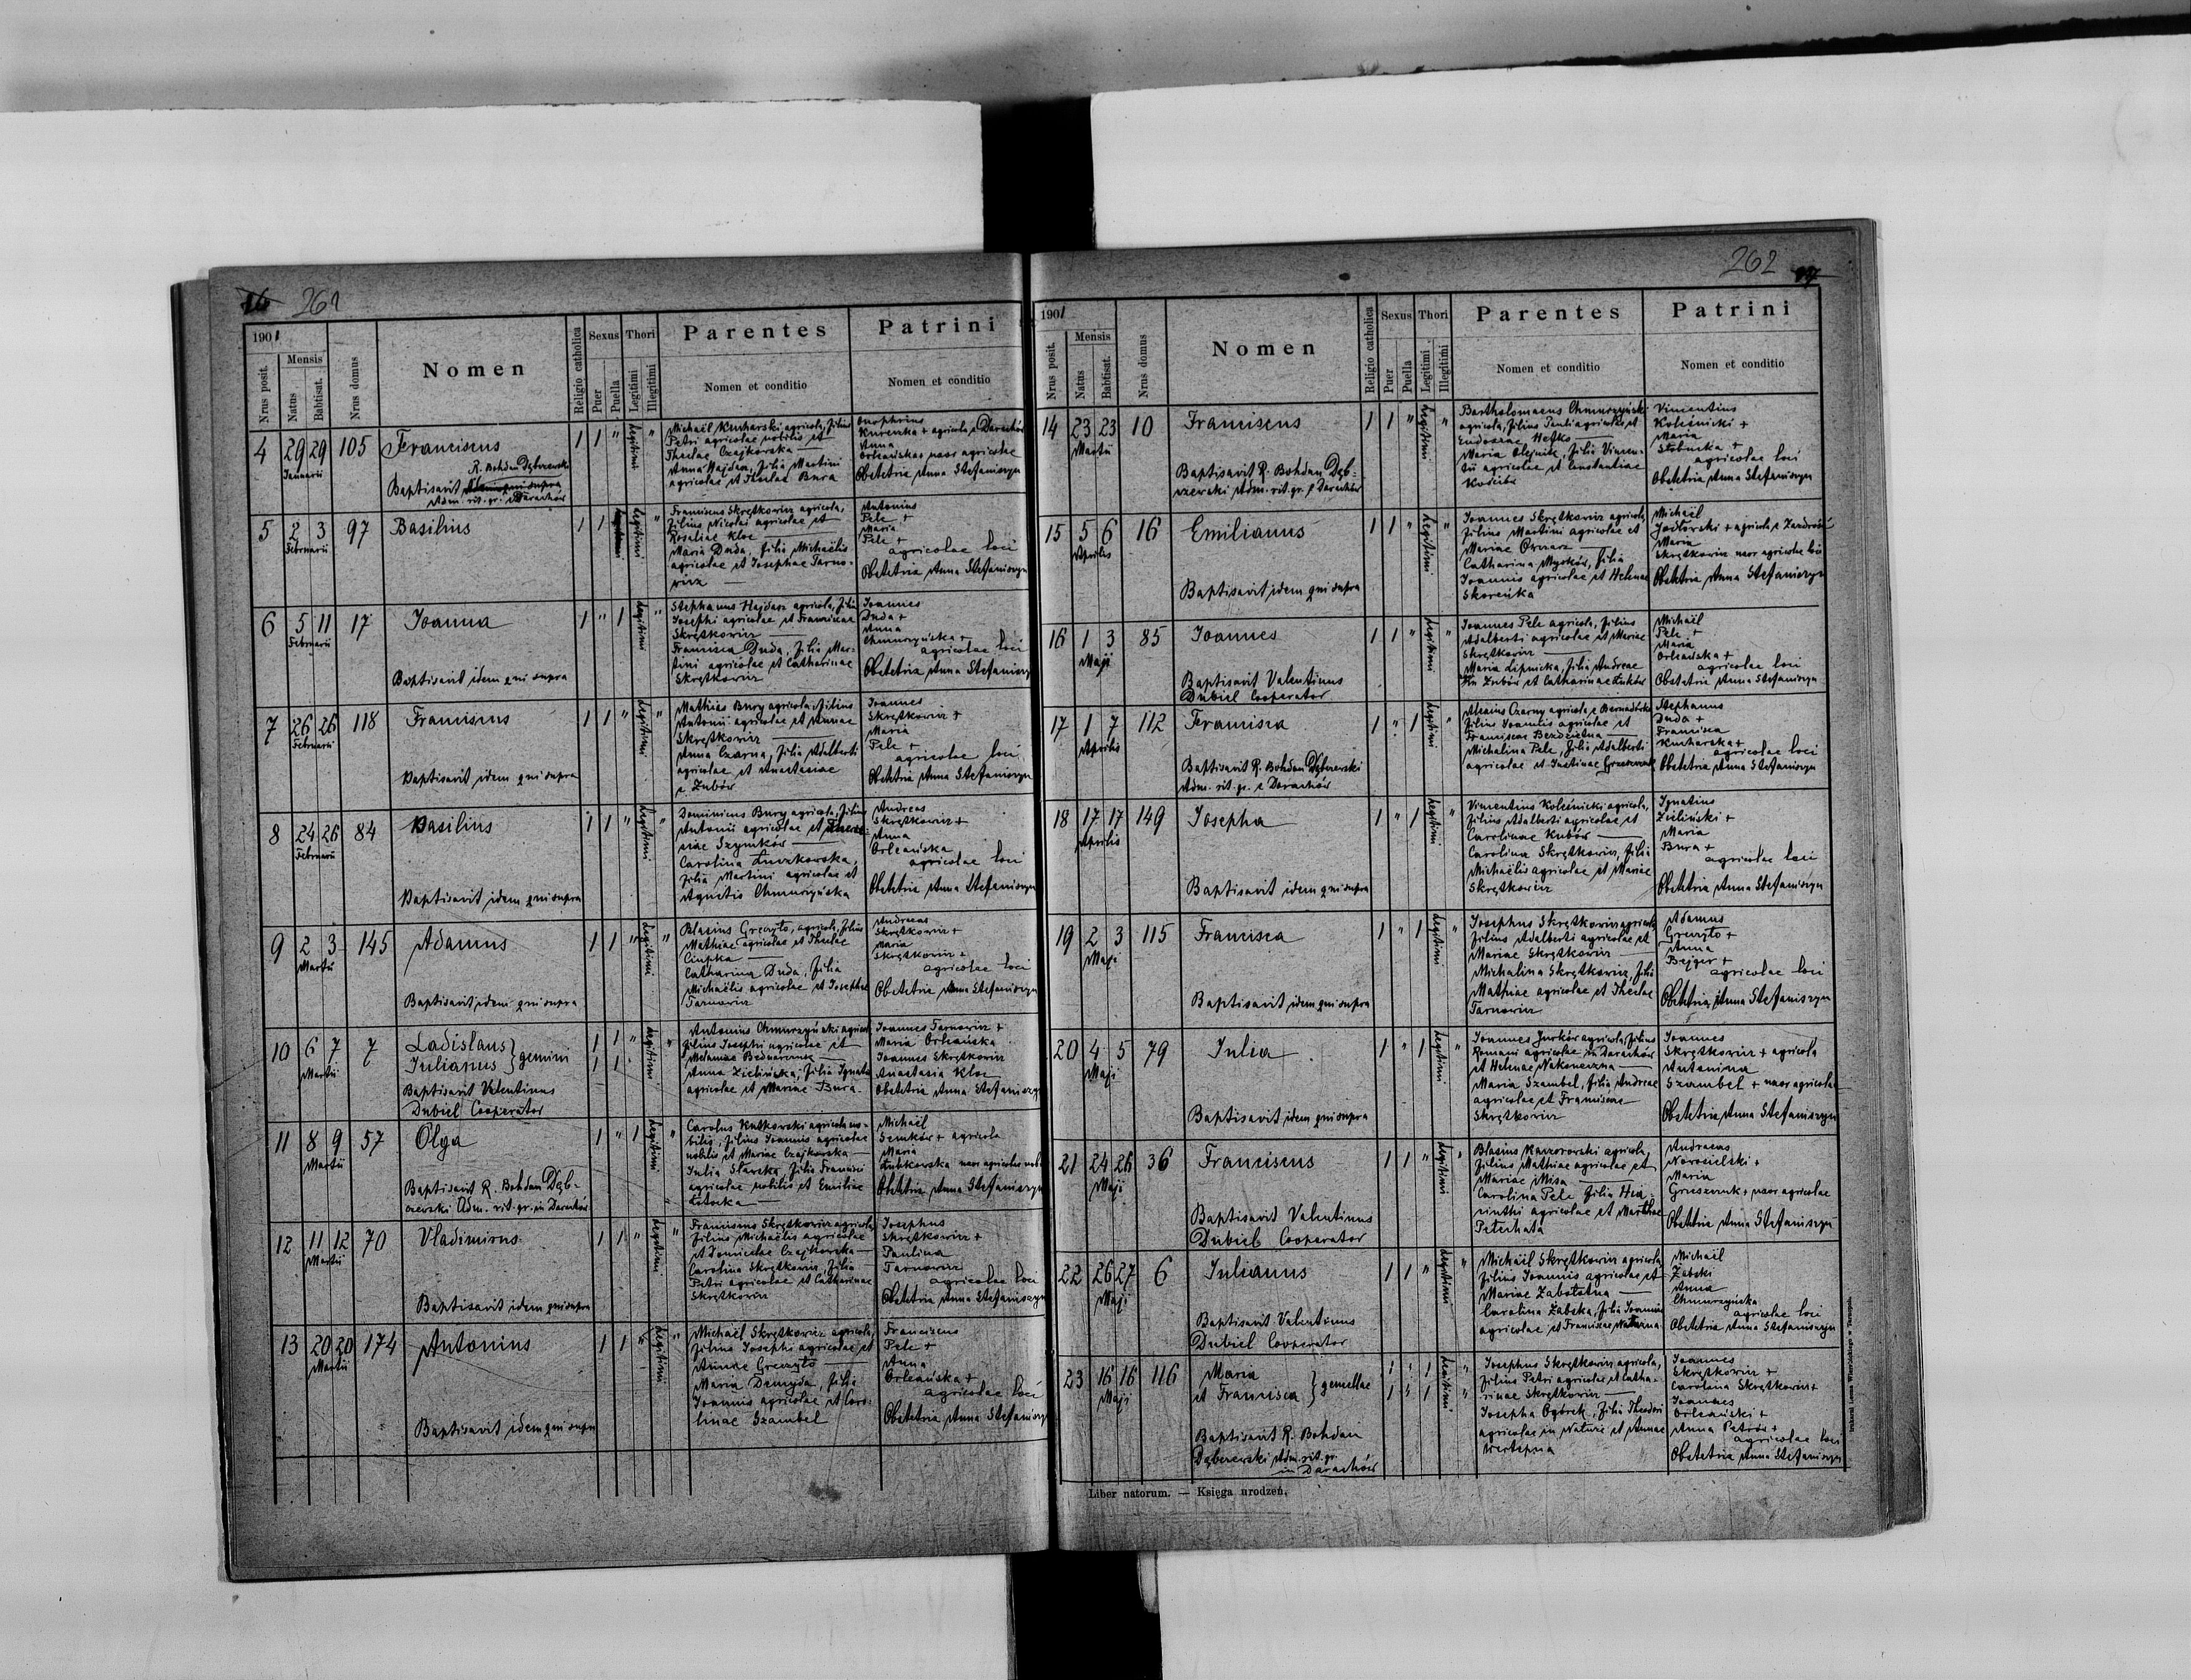 16 261
1901
Nrus posit.
Mensis
Natus
Babtisat.
Nrus domus
Nomen
Religio catholica
Sexus
Puer
Puella
Thori
Legitimi
Illegitimi
Parentes
Nomen et conditio
Patrini
Nomen et conditio
4 29 29 105 Franciscus 1 1 " Legitimi "
Januarii
R. Bohdan Dębczewski
Baptisavit idem qui supra
Adm. rit. gr. e Darachów
Michaël Kucharski agricola, filius
Petri agricolae nobilis et
Theclae Czajkowska —
Anna Hajdasz, filia Martini
agricolae et Theclae Bura
Onophrius
+ agricola e Darachów
Anna
uxor agricolae
Obstetrix Anna Stefaniszyn
5 2 3 97 Basilius 1 1 Legitimi "
Februarii
Franciscus Skrętkowicz agricola,
filius Nicolai agricolae et
Rosaliae Kloc —
Maria Duda, filia Michaëlis
agricolae et Josephae Tarno-
wicz —
Antonius
Pelc +
Maria
Pelc +
agricolae loci
Obstetrix Anna Stefaniszyn
6 5 11 17 Joanna 1 " 1 Legitimi "
Februarii
Baptisavit idem qui supra
Stephanus Hajdasz agricola, filius
Josephi agricolae et Franciscae
Skrętkowicz —
Francisca Duda, filia Mar-
tini agricolae et Catharinae
Skrętkowicz
Joannes
Duda +
Anna
Chmurzyńska +
agricolae loci
Obstetrix Anna Stefaniszyn
7 26 26 118 Franciscus 1 1 " Legitimi "
Februarii
Baptisavit idem qui supra
Mathias Bury agricola, filius
Antonii agricolae et Annae
Skrętkowicz —
Anna Czarna, filia Adalberti
agricolae et Anastasiae
e Zubów
Joannes
Skrętkowicz +
Maria
Pelc +
agricolae loci
Obstetrix Anna Stefaniszyn
8 24 26 84 Basilius 1 1 " Legitimi "
Februarii
Baptisavit idem qui supra
Dominicus Bury agricola, filius
Antonii agricolae et
Szymków —
Carolina Łuczkowska,
filia Martini agricolae et
Agnetis Chmurzyńska
Andreas
Skrętkowicz +
Anna
Orleańska
agricolae loci
Obstetrix Anna Stefaniszyn
9 2 3 145 Adamus 1 1 " Legitimi "
Martii
Baptisavit idem qui supra
Blasius Greczyło, agricola, filius
Mathiae agricolae et Theclae
Ciupka —
Catharina Duda, filia
Michaëlis agricolae et Josephae
Tarnowicz
Andreas
Skrętkowicz +
Maria
Skrętkowicz +
agricolae loci
Obstetrix Anna Stefaniszyn
10 6 7 7 Ladislaus } gemini 1 1 " Legitimi "
Martii Julianus 1 1
Baptisavit Valentinus
Dubiel Cooperator
Antonius Chmurzyński agricola
filius Josephi agricolae et
Melaniae Bednarczuk —
Anna Zielińska, filia Ignatii
agricolae et Mariae Bura
Joannes Tarnowicz +
Maria Orleańska
Joannes Skrętkowicz
Anastasia Kloc
Obstetrix Anna Stefaniszyn
11 8 9 57 Olga 1 " 1 Legitimi "
Martii
Baptisavit R. Bohdan Dęb-
czewski Adm. rit. gr. in Darachów
Carolus Rutkowski agricola no-
bilis, filius Joannis agricolae
nobilis et Mariae Czajkowska —
Julia Sławska, filia Francisci
agricolae nobilis et Emiliae
Michaël
Semków + agricola
Maria
uxor agricolae nobilis
Obstetrix Anna Stefaniszyn
12 11 12 70 Vladimirus 1 1 " Legitimi "
Martii
Baptisavit idem qui supra
Franciscus Skrętkowicz agricola
filius Michaëlis agricolae
et Domicelae Czajkowska —
Carolina Skrętkowicz, filia
Petri agricolae et Catharinae
Skrętkowicz
Josephus
Skrętkowicz +
Paulina
Tarnowicz
agricolae loci
Obstetrix Anna Stefaniszyn
13 20 20 174 Antonius 1 1 " Legitimi "
Martii
Baptisavit idem qui supra
Michaël Skrętkowicz agricola,
filius Josephi agricolae et
Annae Greczyło —
Maria Demyda, filia
Joannis agricolae et Caro-
linae Szambel
Franciscus
Pelc +
Anna
Orleańska +
agricolae loci
Obstetrix Anna Stefaniszyn
262 17
1901
Nrus posit.
Mensis
Natus
Babtisat.
Nrus domus
Nomen
Religio catholica
Sexus
Puer
Puella
Thori
Legitimi
Illegitimi
Parentes
Nomen et conditio
Patrini
Nomen et conditio
14 23 23 10 Franciscus 1 1 " Legitimi "
Martii
Baptisavit R. Bohdan Dęb-
czewski Adm. rit. gr. e Darachów
Bartholomaeus Chmurzyński
agricola, filius Pauli agricolae et
Eudoxiae Hetko —
Maria Olejnik, filia Vincen-
tii agricolae et Constantiae
Kościów
Vincentius
Koleśnicki +
Maria
Słobucka +
agricolae loci
Obstetrix Anna Stefaniszyn
15 5 6 16 Emilianus 1 1 " Legitimi "
Aprilis
Baptisavit idem qui supra
Joannes Skrętkowicz agricola,
filius Martini agricolae et
Mariae Owczar —
Catharina Myśków, filia
Joannis agricolae et Helenae
Skoreńka
Michaël
Jodłowski + agricola e Zazdrość
Maria
Skrętkowicz uxor agricolae loci
Obstetrix Anna Stefaniszyn
16 1 3 85 Joannes 1 1 " Legitimi "
Maji
Baptisavit Valentinus
Dubiel Cooperator
Joannes Pelc agricola, filius
Adalberti agricolae et Mariae
Skrętkowicz —
Maria Lipnicka, filia Andreae
in Zubów et Catharinae Łuków
Michaël
Pelc +
Maria
Orleańska +
agricolae loci
Obstetrix Anna Stefaniszyn
17 1 7 112 Francisca 1 " 1 Legitimi "
Aprilis
Baptisavit R. Bohdan Dębczewski
Adm. rit. gr. e Darachów
Alexius Czarny agricola e Bernadówka
filius Joannis agricolae et
Franciscae Bezdzietna —
Michalina Pelc, filia Adalberti
agricolae et Justinae Greszczuk
Stephanus
Duda +
Francisca
Kucharska +
agricolae loci
Obstetrix Anna Stefaniszyn
18 17 17 149 Josepha 1 " 1 Legitimi "
Aprilis
Baptisavit idem qui supra
Vincentius Koleśnicki agricola,
filius Adalberti agricolae et
Carolinae Kubów —
Carolina Skrętkowicz, filia
Michaëlis agricolae et Mariae
Skrętkowicz
Ignatius
Zieliński +
Maria
Bura +
agricolae loci
Obstetrix Anna Stefaniszyn
19 2 3 115 Francisca 1 " 1 Legitimi "
Maji
Baptisavit idem qui supra
Josephus Skrętkowicz agricola
filius Adalberti agricolae et
Mariae Skrętkowicz —
Michalina Skrętkowicz, filia
Mathiae agricolae et Theclae
Tarnowicz
Adamus
Greczyło +
Anna
Bejger +
agricolae loci
Obstetrix Anna Stefaniszyn
20 4 5 79 Julia 1 " 1 Legitimi "
Maji
Baptisavit idem qui supra
Joannes Jurków agricola, filius
Romani agricolae in Darachów
et Helenae Nakoneczna —
Maria Szambel, filia Andreae
agricolae et Franciscae
Skrętkowicz
Joannes
Skrętkowicz + agricola
Antonina
Szambel + uxor agricolae
Obstetrix Anna Stefaniszyn
21 24 26 36 Franciscus 1 1 " Legitimi "
Maji
Baptisavit Valentinus
Dubiel Cooperator
Blasius Kaczorowski agricola,
filius Mathiae agricolae et
Mariae Misa —
Carolina Pelc filia Hia-
cinthi agricolae et Marthae
Petechata
Andreas
Nowosielski +
Maria
Greszczuk + uxor agricolae
Obstetrix Anna Stefaniszyn
22 26 27 6 Julianus 1 1 " Legitimi "
Maji
Baptisavit Valentinus
Dubiel Cooperator
Michaël Skrętkowicz agricola
filius Joannis agricolae et
Mariae Zabołotna —
Carolina Żabska, filia Joannis
agricolae et Franciscae
Michaël
Żabski
Anna
Chmurzyńska
agricolae loci
Obstetrix Anna Stefaniszyn
23 16 16 116 Maria } gemellae 1 " 1 Legitimi "
Maji et Francisca 1 " 1 "
Baptisavit R. Bohdan
Dębczewski Adm. rit. gr.
in Darachów
Josephus Skrętkowicz agricola,
filius Petri agricolae et Catha-
rinae Skrętkowicz —
Josepha Ogórek, filia Theodori
agricolae in Nałuże et Annae
Wertepna
Joannes
Skrętkowicz +
Carolina Skrętkowicz +
Joannes
Orleański +
Anna Petrów +
agricolae loci
Obstetrix Anna Stefaniszyn
Liber natorum. — Księga urodzeń.